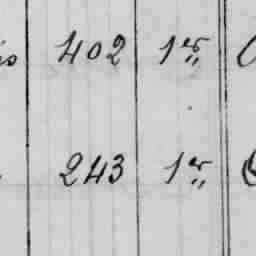 402 1er
243 1er